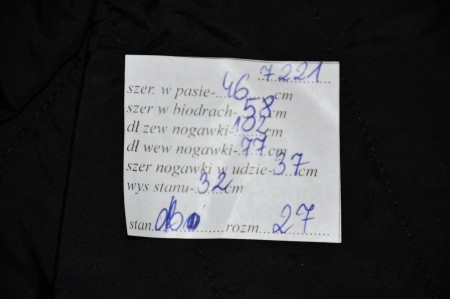 7221
szer. w pasie-46cm
szer w biodrach-58cm
dł zew nogawki-102cm
dł wew nogawki-77cm
szer nogawki w udzie-37cm
wys stanu-32cm
stan db rozm 27